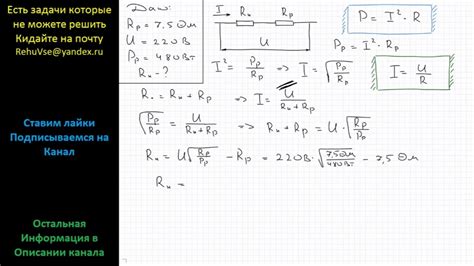 Есть задачи которые
не можете решить
Кидайте на почту
RehuVse@yandex.ru
Ставим лайки
Подписываемся на
Канал
Остальная
Информация в
Описании канала
Дано:
Rр = 7,5 Ом
U = 220 В
Pр = 480 Вт
Rх - ?
I Rх Rр
U
P = I² · R
Pр = I² · Rр
I² = Pр/Rр => I = √(Pр/Rр)
I = U/R
R = Rх + Rр => I = U/(Rх + Rр)
√(Pр/Rр) = U/(Rх + Rр) => Rх + Rр = U √(Rр/Pр)
Rх = U√(Rр/Pр) - Rр = 220 В · √(7,5 Ом/480 Вт) - 7,5 Ом
Rх =